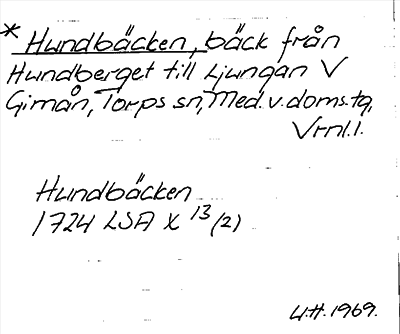 * Hundbäcken, bäck från
Hundberget till Ljungan V
Gimån, Torps sn, Med. v. doms.tg,
Vrnl.l.
Hundbäcken
1724 LSA X 13 (2)
U.H. 1969.